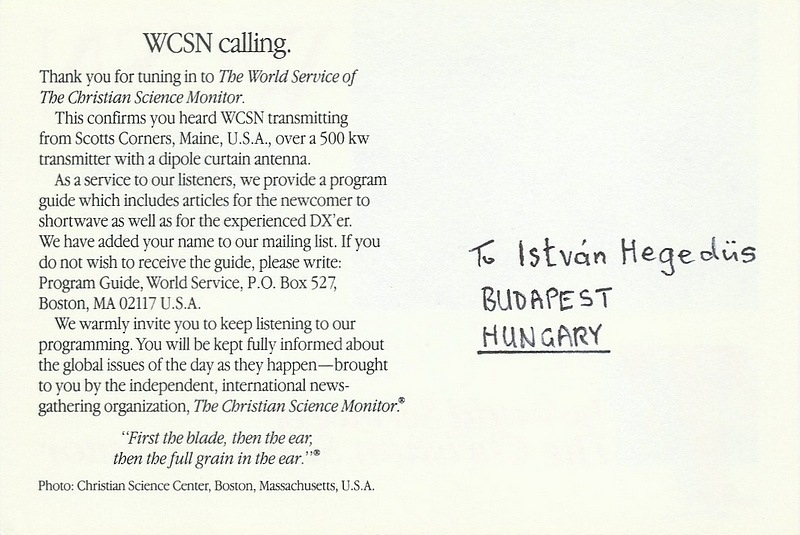 WCSN calling.
Thank you for tuning in to The World Service of
The Christian Science Monitor.
This confirms you heard WCSN transmitting
from Scotts Corners, Maine, U.S.A., over a 500 kw
transmitter with a dipole curtain antenna.
As a service to our listeners, we provide a program
guide which includes articles for the newcomer to
shortwave as well as for the experienced DX'er.
We have added your name to our mailing list. If you
do not wish to receive the guide, please write:
Program Guide, World Service, P.O. Box 527,
Boston, MA 02117 U.S.A.
We warmly invite you to keep listening to our
programming. You will be kept fully informed about
the global issues of the day as they happen—brought
to you by the independent, international news-
gathering organization, The Christian Science Monitor.®
"First the blade, then the ear,
then the full grain in the ear."®
Photo: Christian Science Center, Boston, Massachusetts, U.S.A.
To István Hegedüs
BUDAPEST
HUNGARY